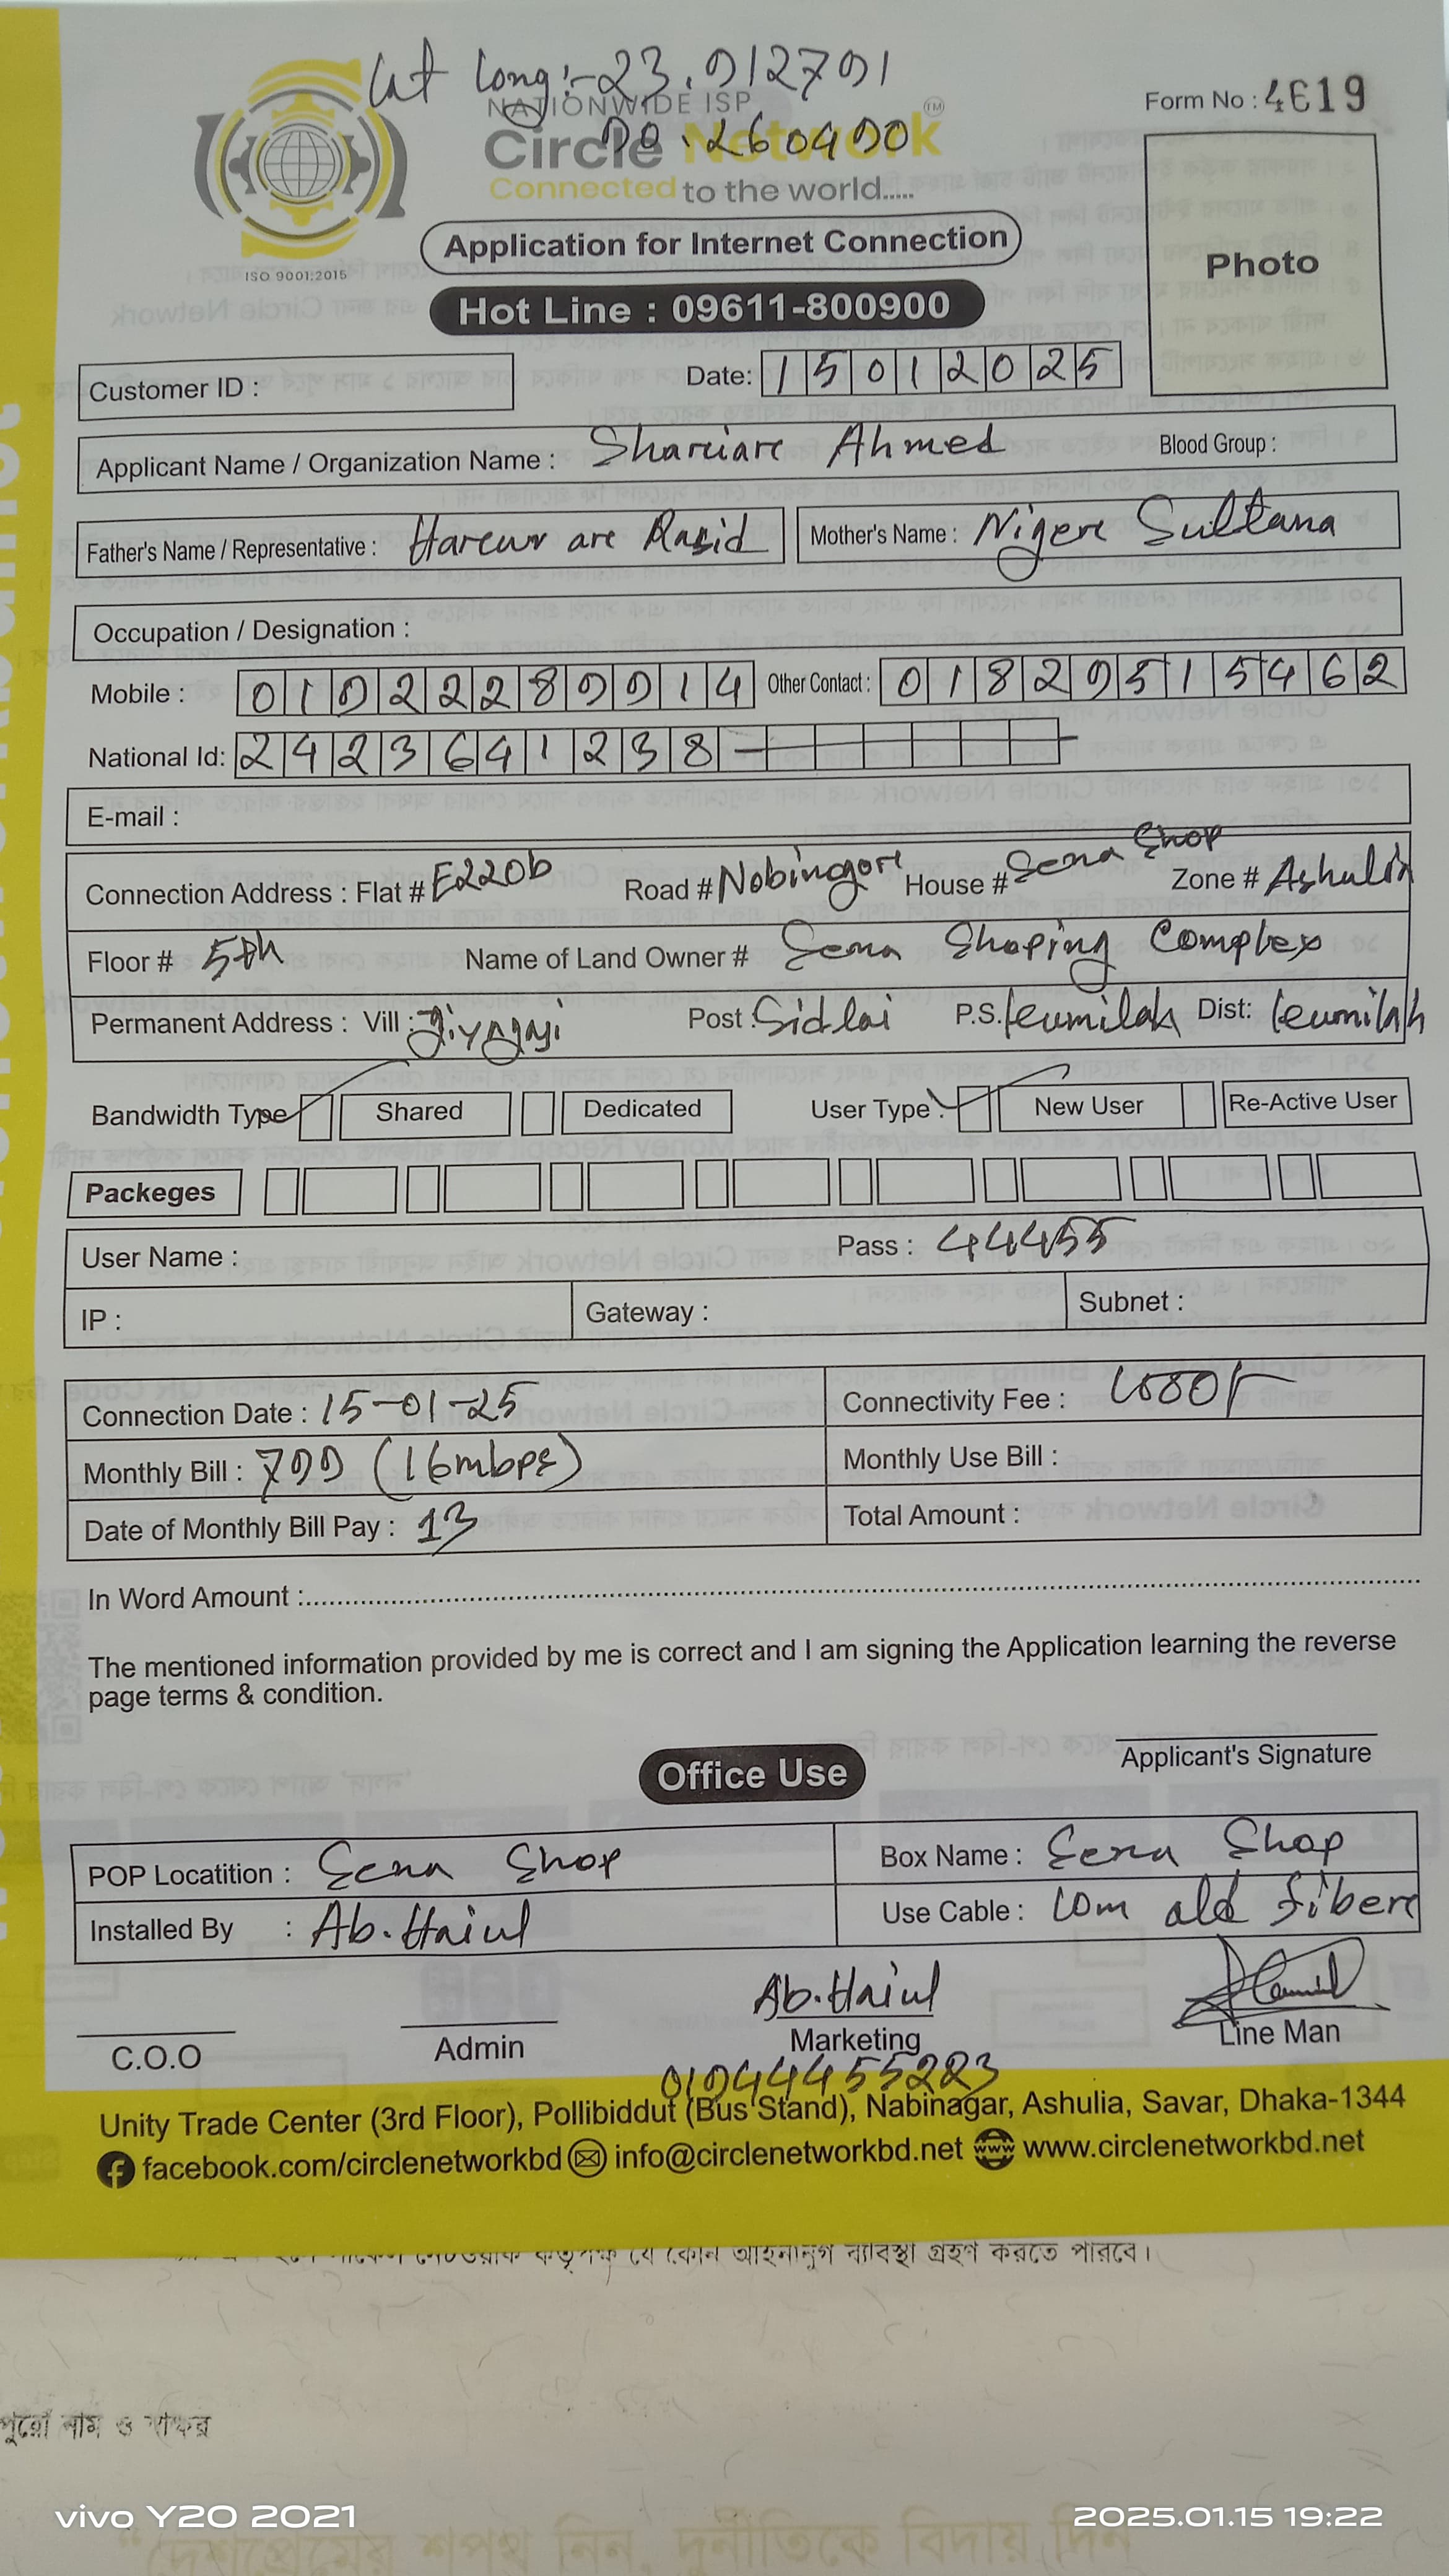 Lat Long:-23.912791
90.260490
NATIONWIDE ISP
Circle Network TM
Connected to the world.....
ISO 9001:2015
Form No : 4619
Photo
Application for Internet Connection
Hot Line : 09611-800900
Customer ID :
Date: 15012025
Applicant Name / Organization Name : Shariare Ahmed Blood Group :
Father's Name / Representative : Harun are Rasid Mother's Name : Nigere Sultana
Occupation / Designation :
Mobile : 01922289914 Other Contact : 01829515462
National Id: 2423641238
E-mail :
Connection Address : Flat # E220b Road # Nobinagor House # Sena Shop Zone # Ashulia
Floor # 5th Name of Land Owner # Sena Shoping Complex
Permanent Address : Vill : Post : Sidlai P.S. Kumilah Dist: Kumilah
Bandwidth Type Shared Dedicated User Type : New User Re-Active User
Packeges
User Name : Pass : 44455
IP : Gateway : Subnet :
Connection Date : 15-01-25 Connectivity Fee : 1000/-
Monthly Bill : 799 (16mbps) Monthly Use Bill :
Date of Monthly Bill Pay : 13 Total Amount :
In Word Amount :
The mentioned information provided by me is correct and I am signing the Application learning the reverse
page terms & condition.
Applicant's Signature
Office Use
POP Locatition : Sena Shop Box Name : Sena Shop
Installed By : Ab.Haiul Use Cable : 10m old fiber
Ab.Haiul
C.O.O Admin Marketing Line Man
01944455223
Unity Trade Center (3rd Floor), Pollibiddut (Bus Stand), Nabinagar, Ashulia, Savar, Dhaka-1344
facebook.com/circlenetworkbd info@circlenetworkbd.net www.circlenetworkbd.net
যে কোন আইনানুগ ব্যবস্থা গ্রহণ করতে পারবে।
পুরো নাম ও স্বাক্ষর
vivo Y20 2021
2025.01.15 19:22
“দেশপ্রেমের শপথ নিন, দুর্নীতিকে বিদায় দিন